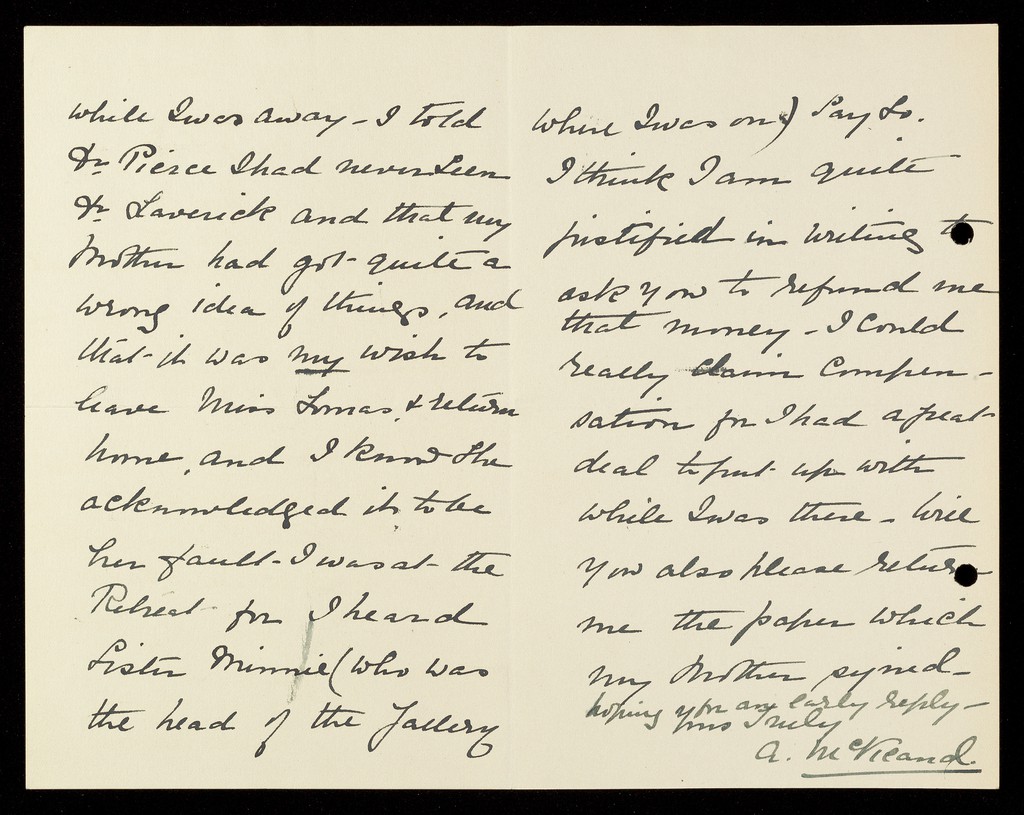 while I was away - I told
Dr Pierce I had never seen
Dr Laverick and that my
Mother had got quite a
wrong idea of things, and
that it was my wish to
leave Miss Lomas, & return
home, and I know she
acknowledged it to be
her fault - I was at the
Retreat for I heard
Sister Minnie (who was
the head of the Gallery
where I was on) say so.
I think I am quite
justified in writing to
ask you to refund me
that money - I could
really claim compen-
sation for I had a great
deal to put up with
while I was there - Will
you also please return
me the paper which
my Mother signed -
hoping for an early reply -
yours Truly
A. McVicand.